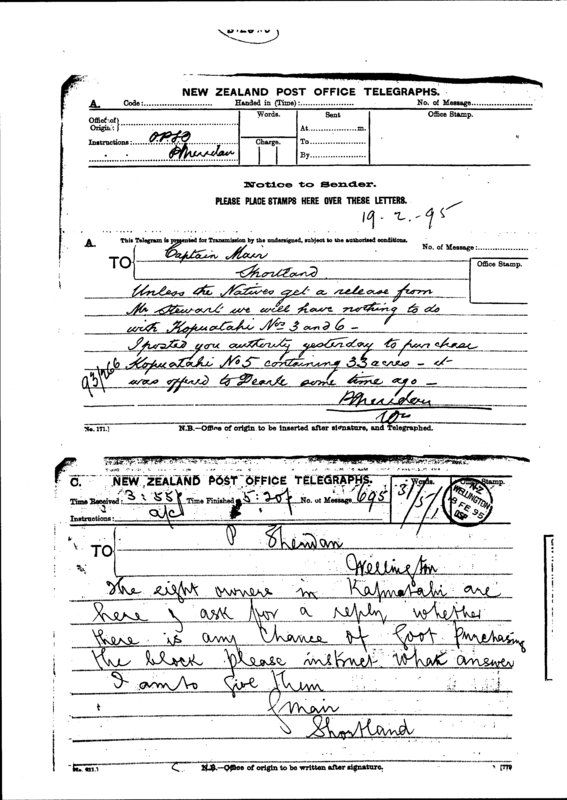 NEW ZEALAND POST OFFICE TELEGRAPHS.
A. Code: Handed in (Time): No. of Message
Office of Origin: Words. Sent Office Stamp.
Instructions: OPSO Charge. At m.
PSheridan To
By
Notice to Sender.
PLEASE PLACE STAMPS HERE OVER THESE LETTERS.
19-2.-95
A. This Telegram is presented for Transmission by the undersigned, subject to the authorised conditions. No. of Message:
TO Captain Mair Office Stamp.
Shortland
Unless the Natives get a release from
Mr Stewart we will have nothing to do
with Kopuatahi Nos 3 and 6 -
I posted you authority yesterday to purchase
Kopuatahi No 5 containing 33 acres - it
was offered to Dearle some time ago -
93/266
PSheridan
No. 171.] N.B.—Office of origin to be inserted after signature, and Telegraphed.
C. NEW ZEALAND POST OFFICE TELEGRAPHS. Words. Office Stamp.
Time Received: 3:55p Time Finished: 5:20p No. of Message: 695 31/5/1
Instructions: a/c
N·Z WELLINGTON 19 FE 95
TO P Sheridan
Wellington
The eight owners in Kapuatahi are
here & ask for a reply whether
there is any chance of Govt purchasing
the block please instruct what answer
I am to give them
G Mair
Shortland
N.B.—Office of origin to be written after signature.